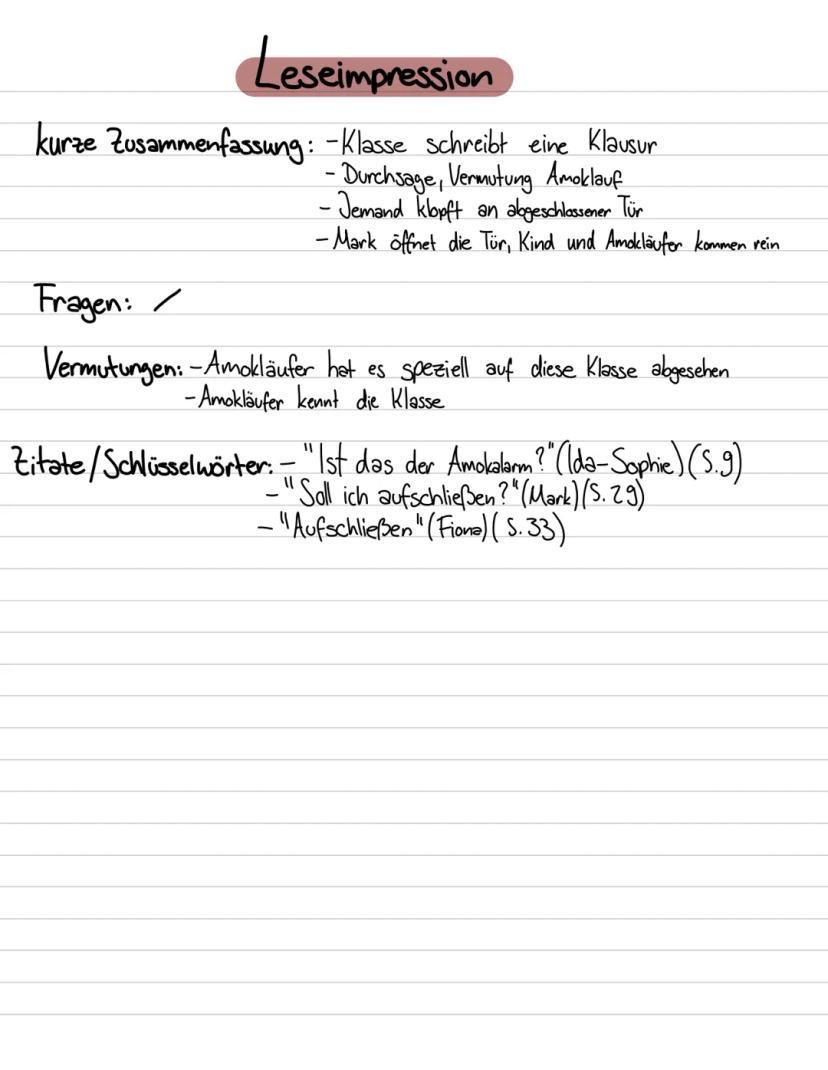 Leseimpression
kurze Zusammenfassung: - Klasse schreibt eine Klausur
- Durchsage, Vermutung Amoklauf
- Jemand klopft an abgeschlossener Tür
- Mark öffnet die Tür, Kind und Amokläufer kommen rein
Fragen: /
Vermutungen: - Amokläufer hat es speziell auf diese Klasse abgesehen
- Amokläufer kennt die Klasse
Zitate/Schlüsselwörter: - "Ist das der Amokalarm?" (Ida-Sophie) (S.9)
- "Soll ich aufschließen?" (Mark) (S. 29)
- "Aufschließen" (Fiona) (S. 33)